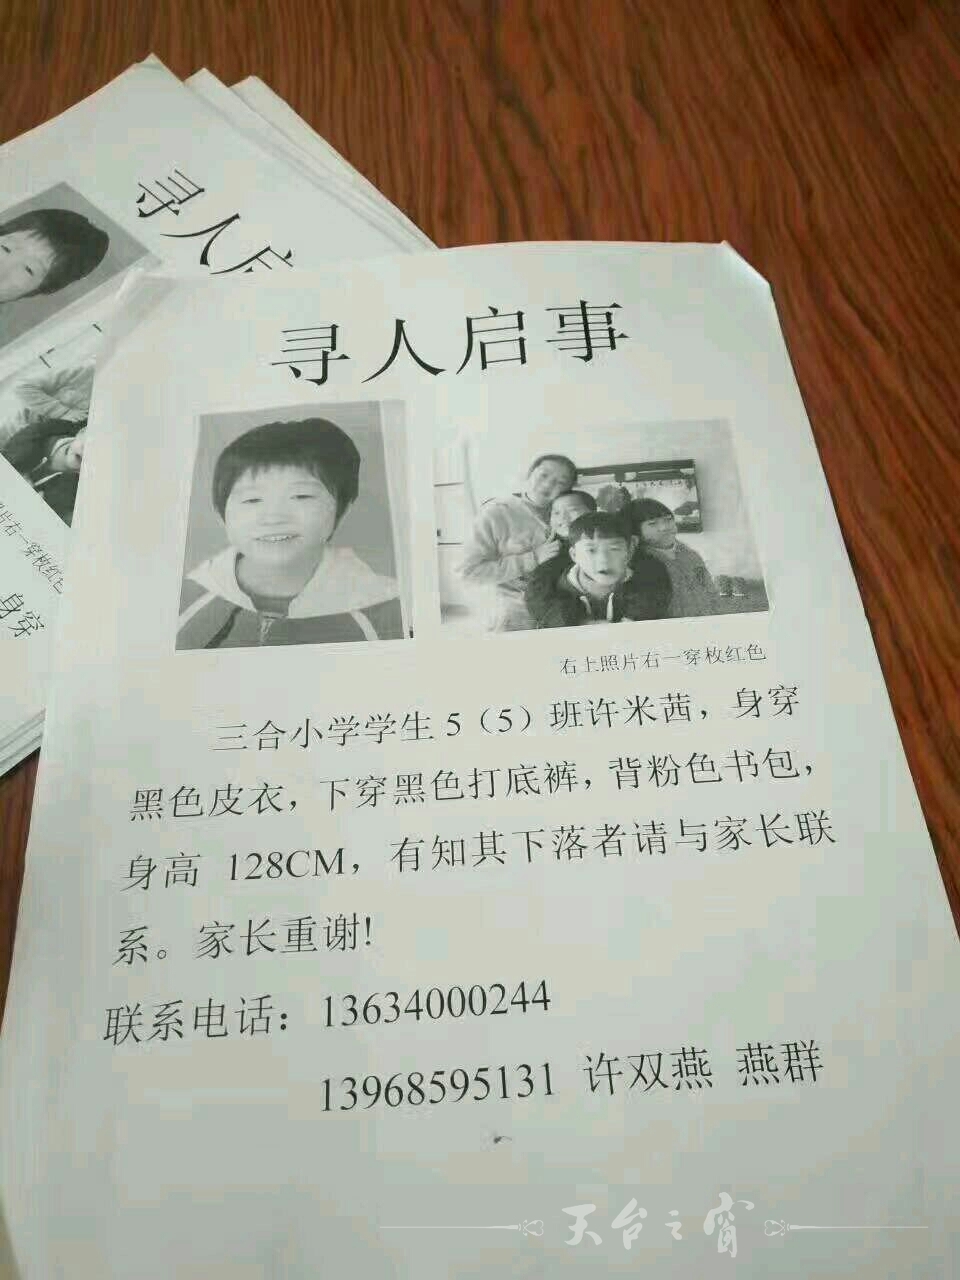 寻人启
片右一穿枚红色
身穿
寻人启事
右上照片右一穿枚红色
三合小学学生 5（5）班许米茜，身穿
黑色皮衣，下穿黑色打底裤，背粉色书包，
身高 128CM，有知其下落者请与家长联
系。家长重谢!
联系电话：13634000244
13968595131 许双燕 燕群
天台之窗